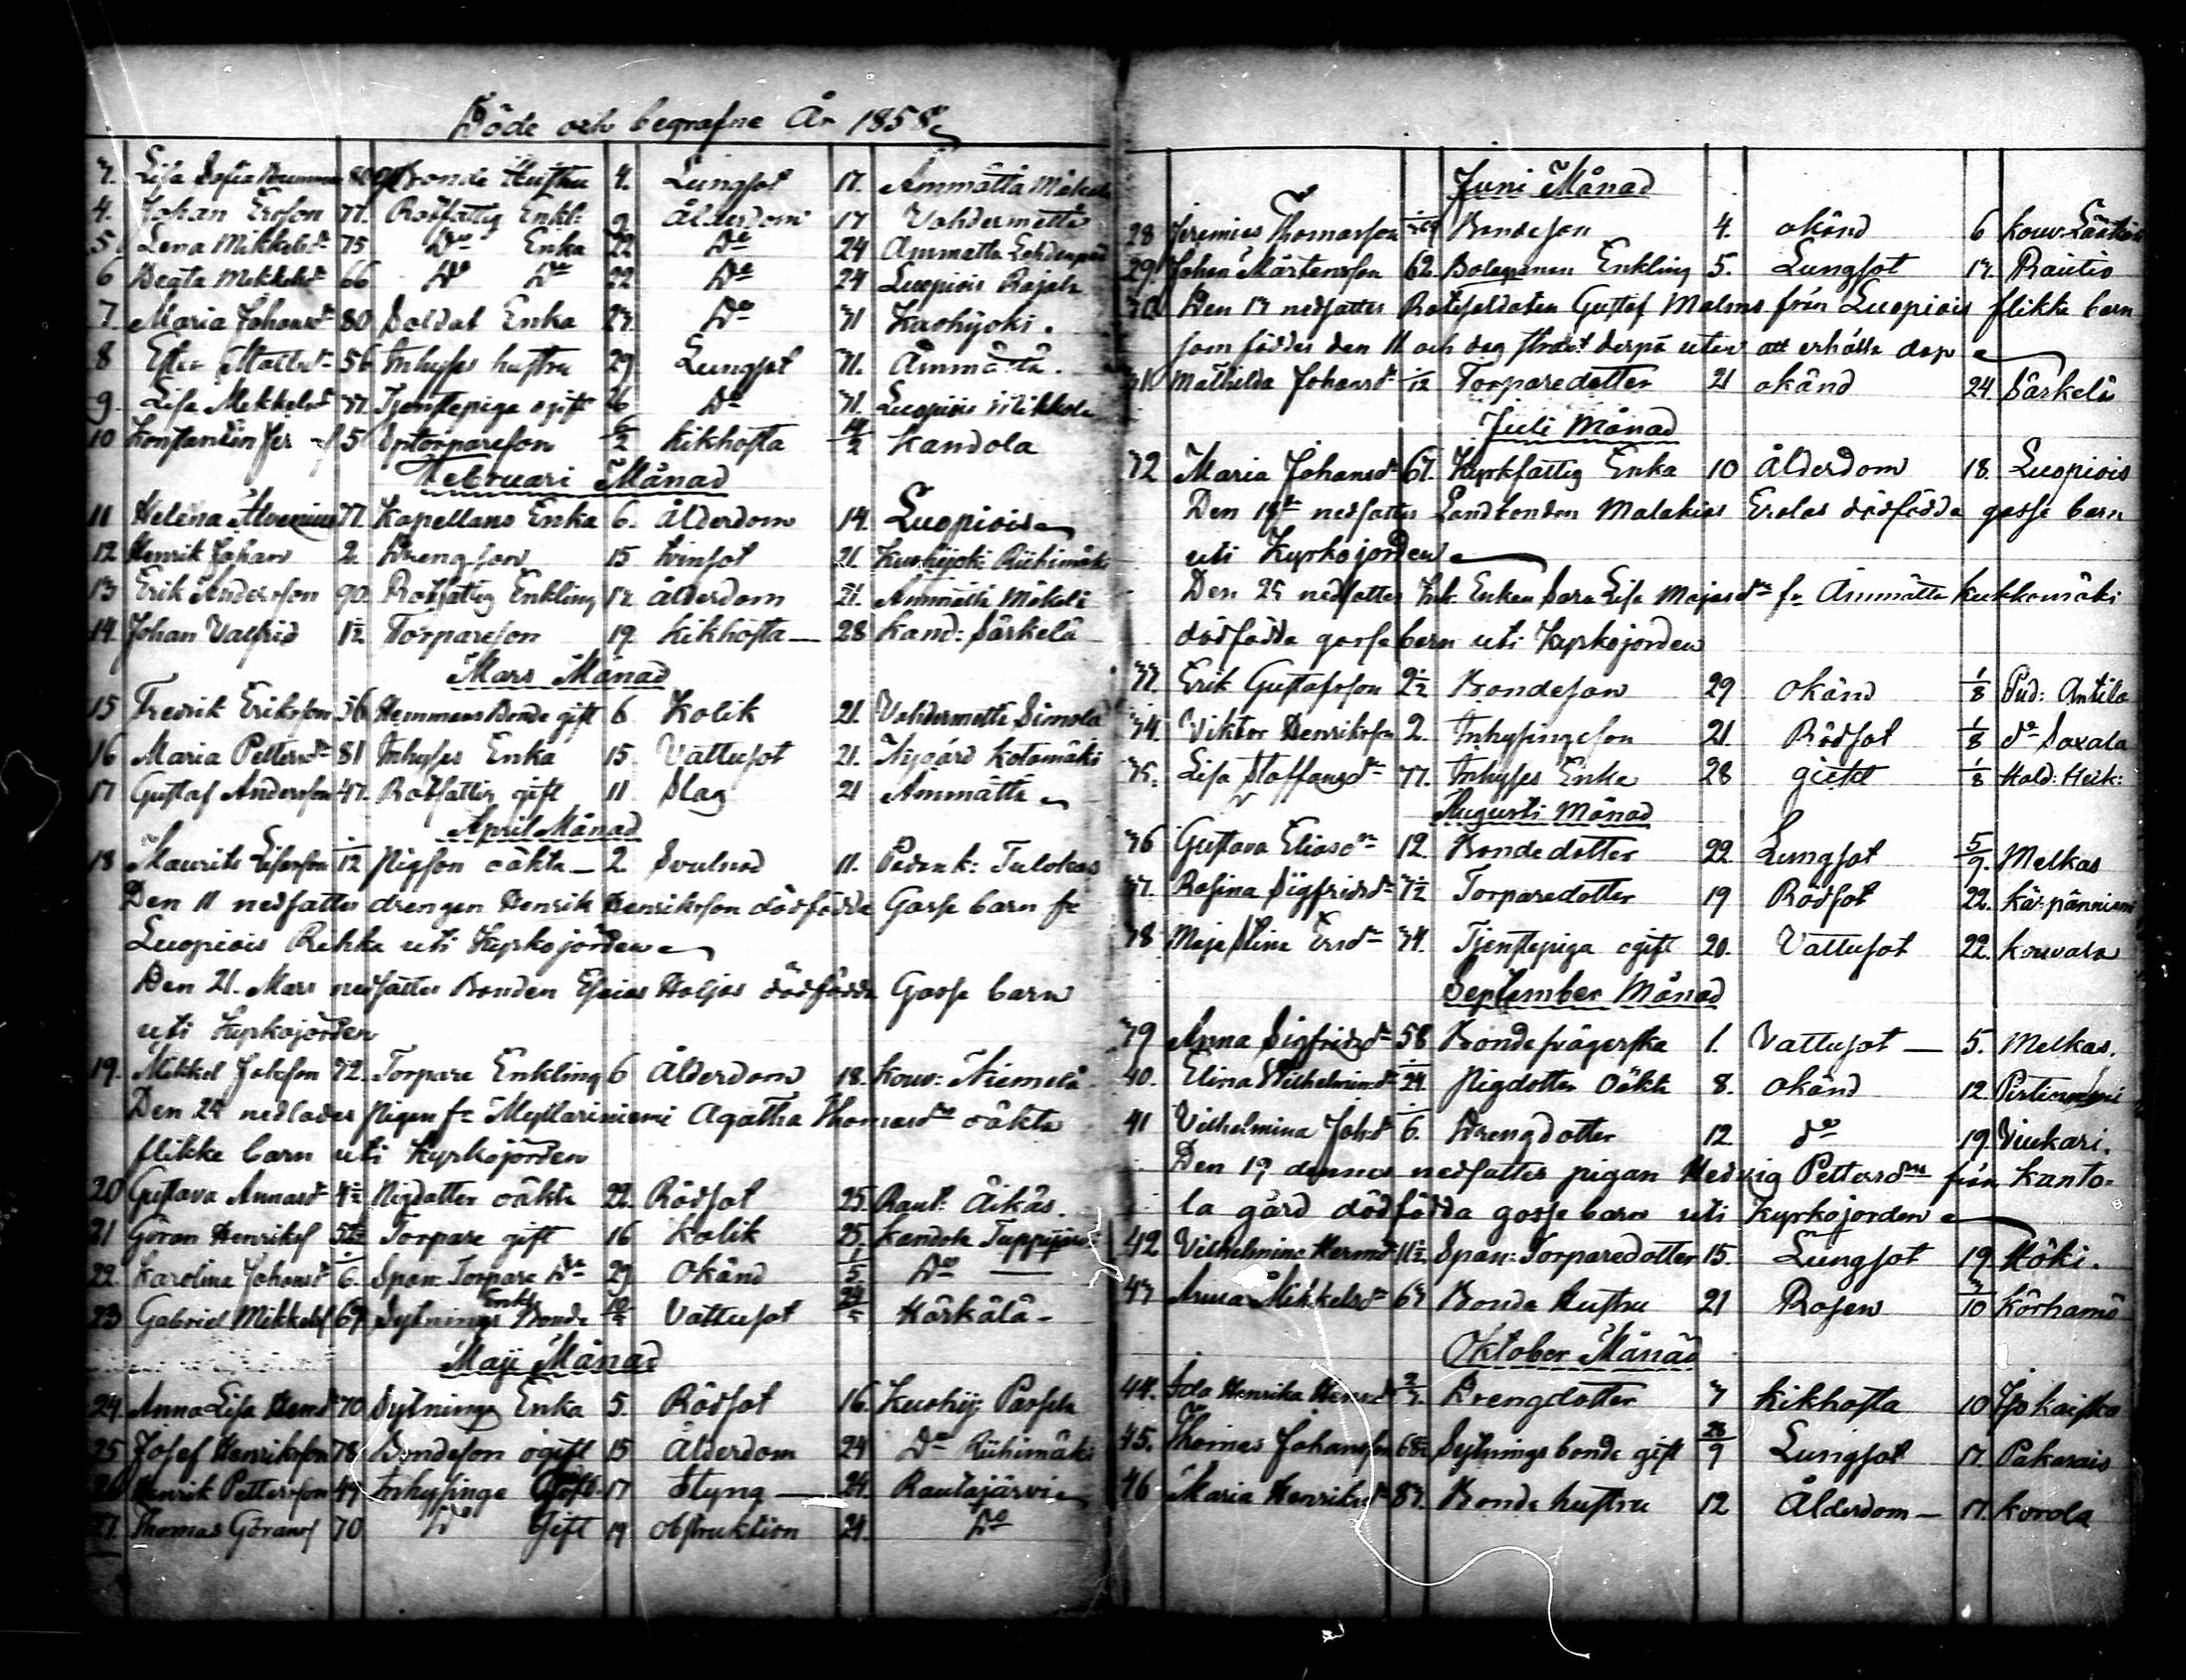 Döde och begrafne År 1858
3. Lisa Sofia Bonde Hustru 4. Lungsot 17. Ammättä Mäkelä
4. Johan Ersson 77. Rotfattig Enkl: 9 Ålderdom 17 Vahdermetti
5. Lena Mikkelsdr 75 Do Enka 22 Do 24 Ammättä
6 Beata Mikkelsdr 66 Do Do 22 Do 24 Luopiois Rajala
7 Maria Johansdr 80 Soldat Enka 23. Do 31 Kuohijoki.
8 Ester Mattsdr 56 Inhyses hustru 29 Lungsot 31. Ämmättä.
9 Lisa Mikkelsdr 37. Tjenstepiga ogift 26 Do 31. Luopiois Mikkola
10 Konstantin 5 Sptorpareson 6/2 Kikhosta 14/2 Kandola
Februari Månad
11 Helena Alvenius 77. Kapellans Enka 6. Ålderdom 14. Luopiois
12 Henrik Johan 2. Drengson 15 tvinsot 21. Kuohijoki Riihimäki
13 Erik Andersson 90. Rotfattig Enkling 13. Ålderdom 21. Ämmättä Mäkelä
14. Johan Valfrid 1½ Torpareson 19. Kikhosta 28 Kand: Särkelä
Mars Månad
15 Fredrik Eriksson 56 Hemmans Bonde gift 6 Kolik 21. Vahdermetti Simola
16 Maria Pettersdr 81 Inhyses Enka 15. Vattusot 21. Nygård Kotomäki
17 Gustaf Andersson 47. Rotfattig gift 11 Slag 21 Ämmättä
April Månad
18 Maurits 12 Pigson oäkta 2. Svulnad 11. Tulokas
Den 11 nedsattes drengen Henrik Henriksson dödfödda Gosse barn fr
Luopiois Rekka uti Kyrkojorden
Den 21. Mars nedsattes Bonden Esaias Haljas dödfödda Gosse barn
uti Kyrkojorden
19. Mikkel Johsson 72. Torpare Enkling 6 Ålderdom 18. Kouv: Niemelä
Den 25 nedlades Pigen fr Myllariniemi Agatha Thomasdr oäkta
flikke barn uti Kyrkojorden
20 Gustava Annasdr 4½ Pigdotter oäkta 22. Rödsot 25. Raut: Äikäs.
21 Göran Henriks 52½ Torpare gift 16 Kolik 25. Kandola
22. Karolina Johansdr 6. Span Torpare Dr 29 Okänd 1/5. Do
23 Gabriel Mikkels 69 Sytnings Enkl Bonde Vattusot Härkälä
Maji Månad
24. Anna Lisa Hend 70 Sytnings Enka 5. Rödsot 16. Kuohij:
25 Josef Henriksson 78 Bondeson ogift 15 Ålderdom 24 Do Riihimäki
26 Henrik Pettersson 49 Inhysinge Gift 17 Styng 24. Rautajärvi
27. Thomas Görans 70 Do Gift 19 obstruktion 24. Do
Juni Månad
28 Jeremias Thomasson Bondeson 4. okänd 6 Kouv:
29. Johan Mårtensson 62. Bolagsman Enkling 5. Lungsot 13. Rautio
30 Den 13 nedsattes Rotesoldaten Gustaf Malms från Luopiois flikke barn
som föddes den 11 och dog strax derpå utan att erhålla dop
31 Mathilda Johansdr 1/12 Torparedotter 21 okänd 24. Särkelä
Juli Månad
32 Maria Johansdr 67. Kyrkfattig Enka 10 Ålderdom 18. Luopiois
Den 18de nedsattes Landbonden Malakias Erolas dödfödda gosse barn
uti Kyrkojorden
Den 25 nedsattes Enkan Sara Lisa Majasdr fr Ämmättä Kukkomäki
dödfödda gosse barn uti Kyrkojorden
33. Erik Gustafsson 2½ Bondeson 29 okänd 1/8 Pud: Antila
34. Viktor Henriksson 2. Inhysingeson 21. Rödsot 1/8 do Saxala
35. Lisa Staffansdr 77. Inhyses Enka 28 gickt 1/8 Hald: Heik:
Augusti Månad
36 Gustava Eliasdr 12. Bondedotter 22. Lungsot 5/9. Melkas
37. Rosina Sigfridsdr 3½ Torparedotter 19 Rödsot 22. Kärpänniemi
38 Maja Stina Ersdr 34. Tjenstepiga ogift 20. Vattusot 22. Kouvala
September Månad
39 Anna Sigfridsdr 58 Bondesvägerska 1. Vattusot 5. Melkas.
40. Elina Wilhelmindr Pigdotter Oäkta 8. okänd 12. Pirttiniemi
41 Vilhelmina Johdr 6. Drengdotter 12. do 19 Viukari.
Den 19 dennes nedsattes pigan Hedvig Pettersdrs från Kanto-
la gård dödfödda gosse barn uti Kyrkojorden
42 Vilhelmina Hermdr 11½ Span: Torparedotter 15. Lungsot 19. Höki.
43 Anna Mikkelsdr 63 Bonde Hustru 21 Rosen 3/10 Körhamo
Oktober Månad
44. Ida Henrika Henrd Drengdotter 3 Kikhosta 10
45. Thomas Johansson 68½ Sytnings bonde gift 28/9 Lungsot 17. Pakarais
46 Maria Henriksdr 83. Bonde hustru 12 Ålderdom 17. Korola